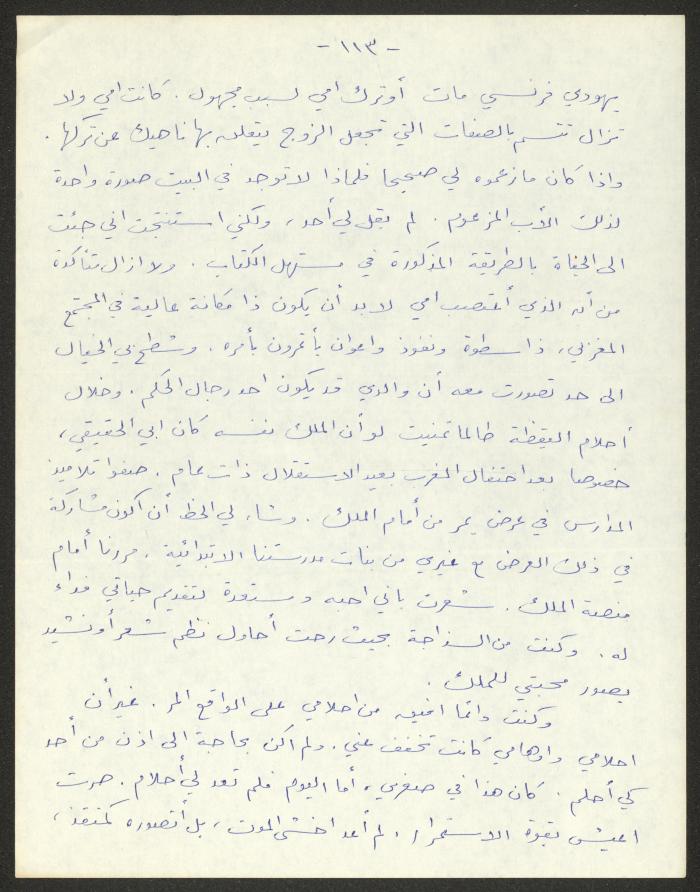 - ١١٣ -
يهودي فرنسي مات أو ترك امي لسبب مجهول . كانت امي ولا
تزال تتسم بالصفات التي تجعل الزوج يتعلق بها ناهيك عن تركها .
واذا كان ما زعموه لي صحيحا فلماذا لا توجد في البيت صورة واحدة
لذلك الأب المزعوم . لم يقل لي أحد ، ولكني استنتجت اني جئت
الى الحياة بالطريقة المذكورة في مستهل الكتاب . ولا ازال متأكدة
من أن الذي أغتصب امي لا بد أن يكون ذا مكانة عالية في المجتمع
المغربي ، ذا سطوة ونفوذ واعوان يأتمرون بأمره . وشطح بي الخيال
الى حد تصورت معه أن والدي قد يكون احد رجال الحكم . وخلال
أحلام اليقظة طالما تمنيت لو أن الملك نفسه كان ابي الحقيقي ،
خصوصا بعد احتفال المغرب بعيد الاستقلال ذات عام . صفوا تلاميذ
المدارس في عرض يمر من أمام الملك . وشاء لي الحظ أن اكون مشاركة
في ذلك العرض مع غيري من بنات مدرستنا الابتدائية . مررنا أمام
منصة الملك . شعرت باني احبه ومستعدة لتقديم حياتي فداء
له . وكنت من السذاجة بحيث رحت أحاول نظم شعر أو نشيد
يصور محبتي للملك .
وكنت دائما افيق من احلامي على الواقع المر . غير أن
احلامي واوهامي كانت تخفف عني . ولم اكن بحاجة الى اذن من أحد
كي أحلم . كان هذا في صغري ، أما اليوم فلم تعد لي أحلام . صرت
اعيش بقوة الاستمرار ، لم أعد اخشى الموت ، بل أتصوره كمنقذ ،